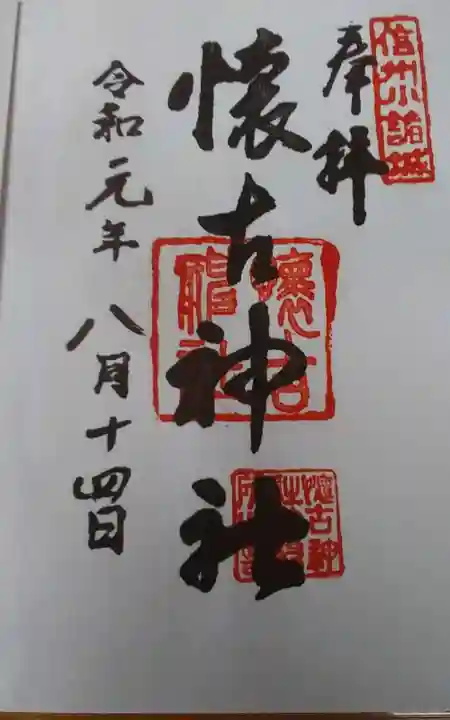 信州小諸城
奉拝
懐古神社
懐古神社
令和元年八月十四日